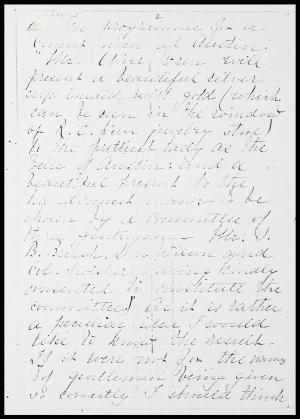 2
as the programme for a
Concert given at Austin:
"Mr. will
present a beautiful silver
cup inlaid with gold (which
can be seen in the window
of R. C. jewelry store)
to the prettiest lady as the
Belle of Austin: and a
beautiful present to the
handsomest man: to be
chosen by a committee of
three gentlemen — Mr. J.
B. and
Col. having kindly
consented to constitute the
committee." As it is rather
a peculiar idea I would
like to know the result.
If it were not for the names
of gentlemen being given
so correctly I should think